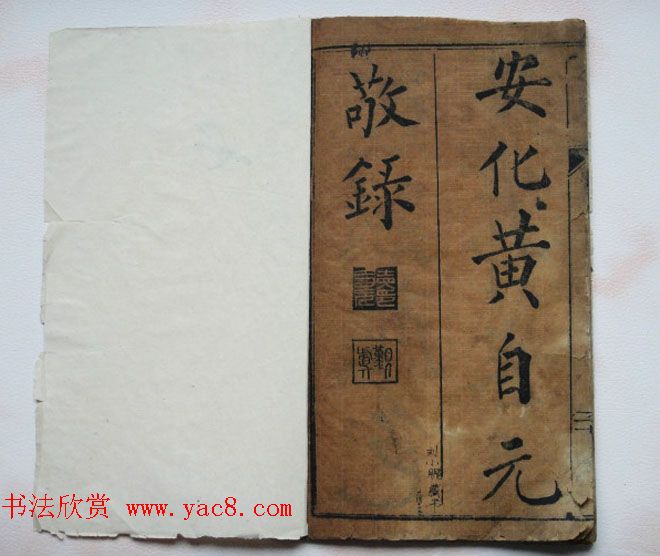 安化黄自元
敬錄
书法欣赏 www.yac8.com